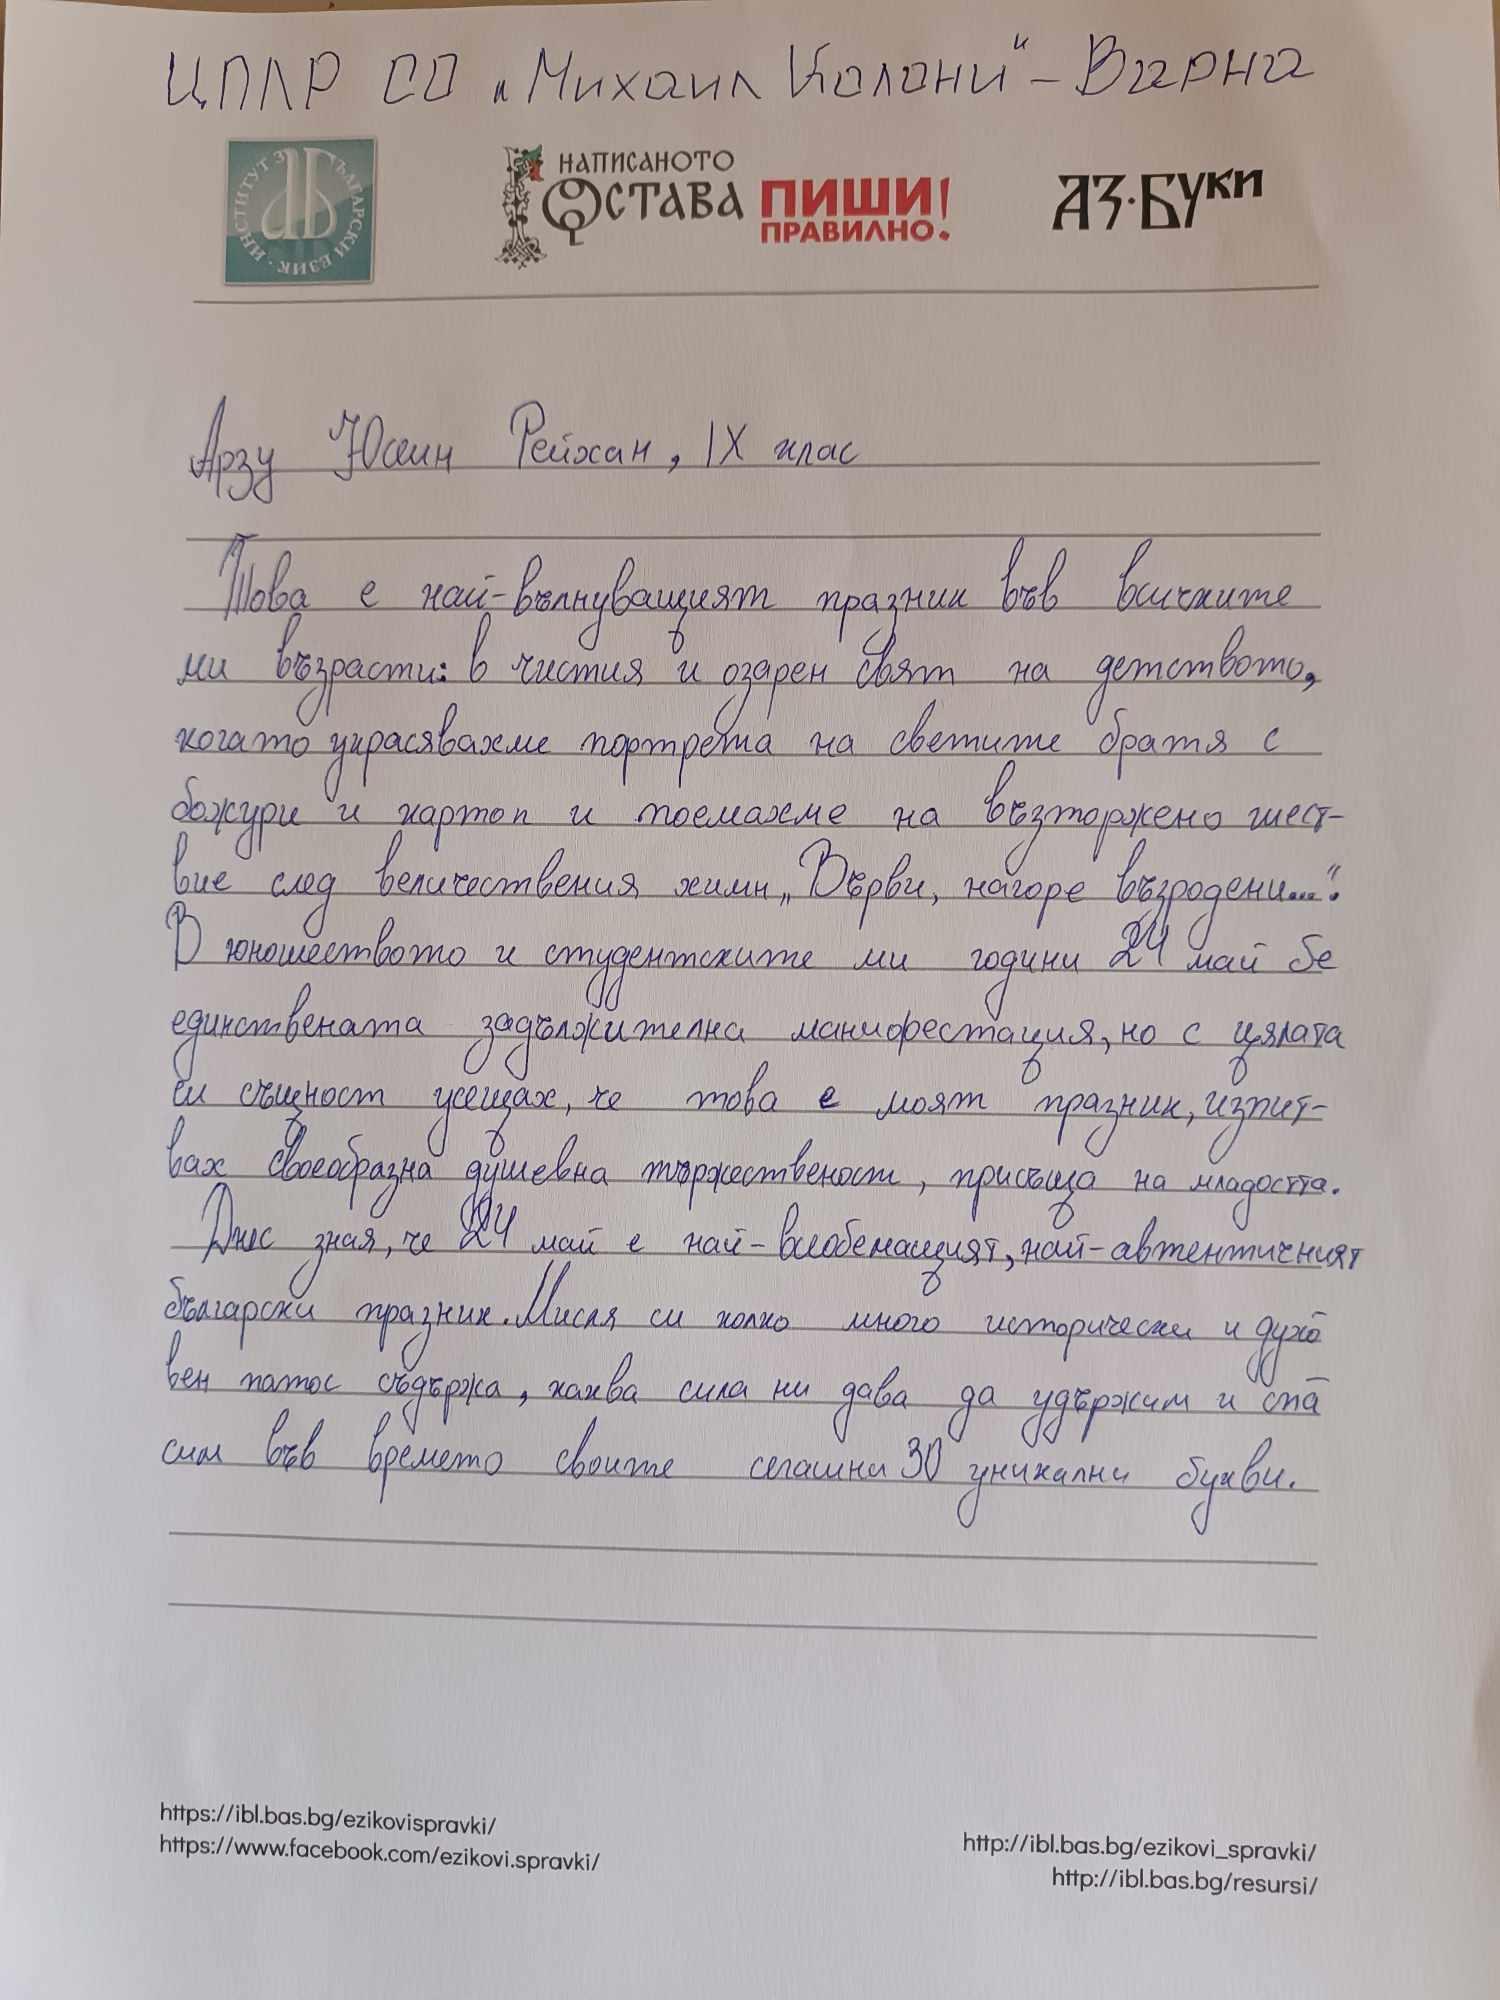 ЦПЛР СО „Михаил Колони“ – Варна
ИНСТИТУТ ЗА БЪЛГАРСКИ ЕЗИК
НАПИСАНОТО
ОСТАВА
ПИШИ
ПРАВИЛНО!
АЗ·БУКИ
Арзу Юсеин Рейхан, IX клас
Това е най-вълнуващият празник във всичките
ми възрасти: в чистия и озарен свят на детството,
когато украсявахме портрета на светите братя с
божури и картоп и поемахме на възторжено шест-
вие след величествения химн „Върви, нагоре възродени...“.
В юношеството и студентските ми години 24 май бе
единствената задължителна манифестация, но с цялата
си същност усещах, че това е моят празник, изпит-
вах своеобразна душевна тържественост, присъща на младостта.
Днес зная, че 24 май е най-всеобемащият, най-автентичният
български празник. Мисля си колко много исторически и духо
вен патос съдържа, каква сила ни дава да удържим и спа
сим във времето своите сегашни 30 уникални букви.
https://ibl.bas.bg/ezikovispravki/
https://www.facebook.com/ezikovi.spravki/
http://ibl.bas.bg/ezikovi_spravki/
http://ibl.bas.bg/resursi/